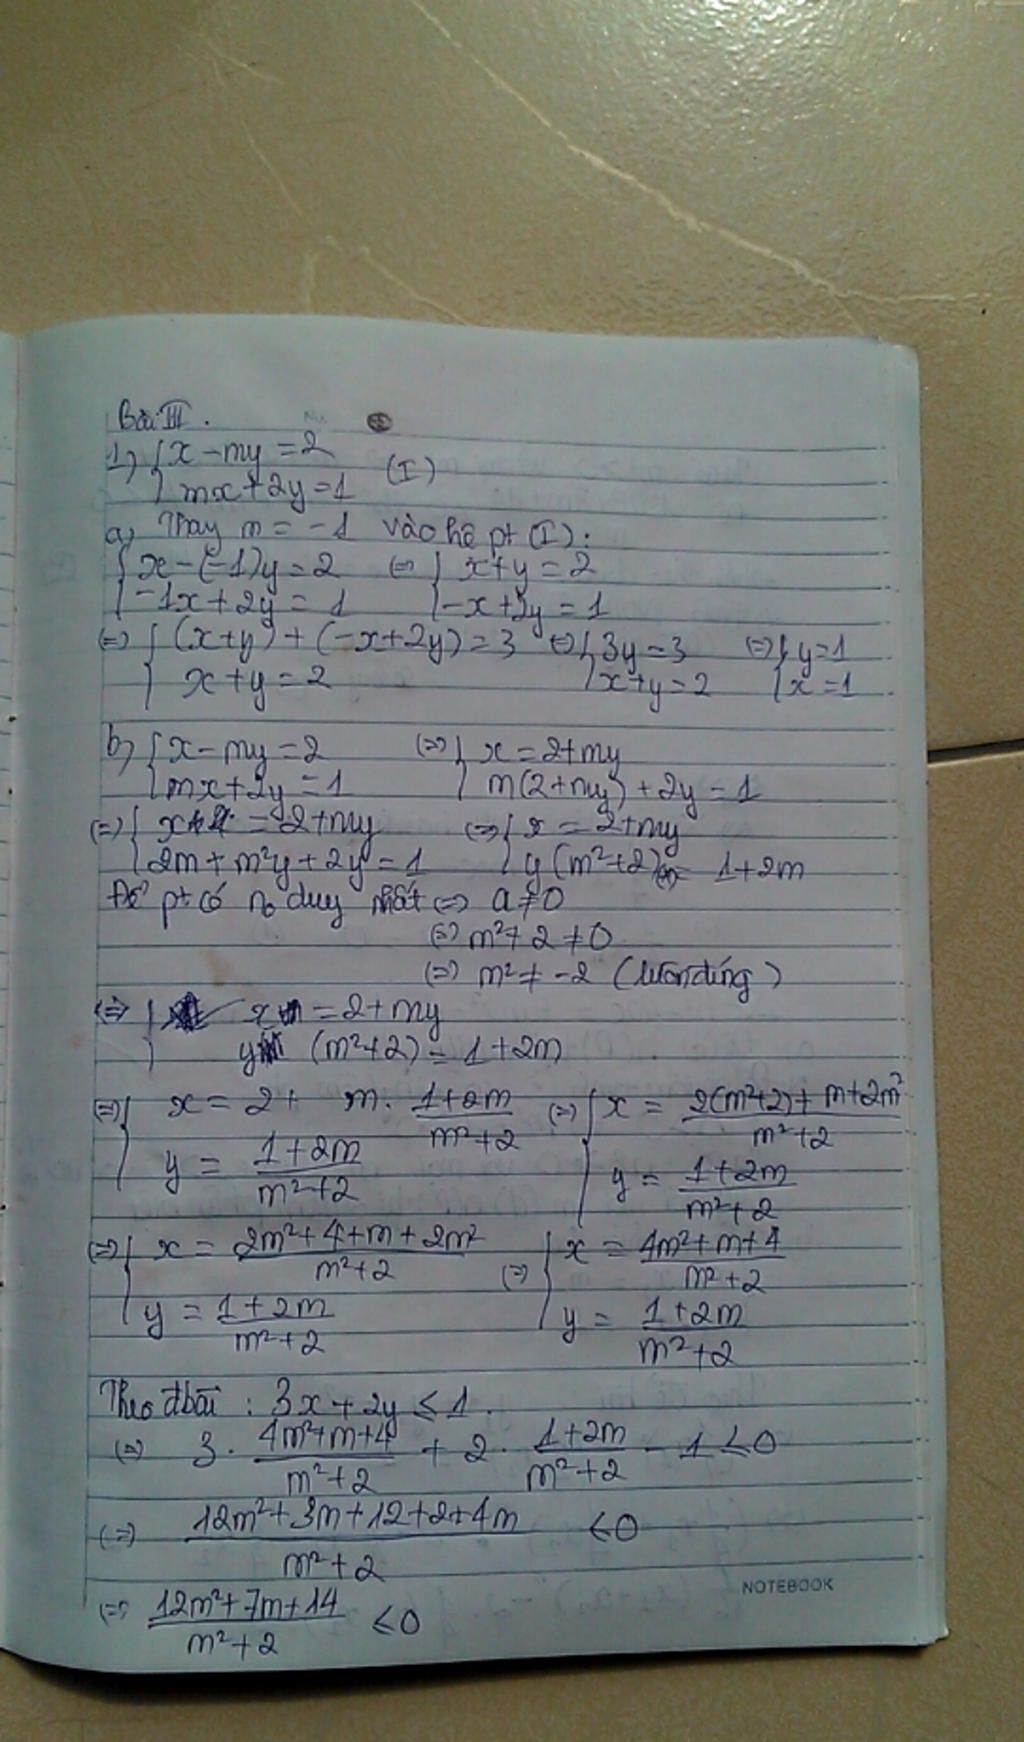 Bài III.
1) { x - my = 2
{ mx + 2y = 1 (I)
a) Thay m = -1 vào hệ pt (I):
{ x - (-1)y = 2 (=) { x + y = 2
{ -1x + 2y = 1 { -x + 2y = 1
(=) { (x+y) + (-x+2y) = 3 (=) { 3y = 3 (=) { y = 1
{ x + y = 2 { x + y = 2 { x = 1
b) { x - my = 2 (=) { x = 2 + my
{ mx + 2y = 1 { m(2+my) + 2y = 1
(=) { x = 2 + my (=) { x = 2 + my
{ 2m + m²y + 2y = 1 { y(m²+2) = 1 + 2m
Để pt có no duy nhất (=) a ≠ 0
(=) m² + 2 ≠ 0
(=) m² ≠ -2 (luôn đúng)
(=) { x = 2 + my
{ y (m²+2) = 1 + 2m
(=) { x = 2 + m. (1+2m)/(m²+2) (=) { x = (2(m²+2) + m + 2m²)/(m²+2)
{ y = (1+2m)/(m²+2) { y = (1+2m)/(m²+2)
(=) { x = (2m² + 4 + m + 2m²)/(m²+2) (=) { x = (4m² + m + 4)/(m²+2)
{ y = (1+2m)/(m²+2) { y = (1+2m)/(m²+2)
Theo đbài : 3x + 2y ≤ 1.
(=) 3. (4m²+m+4)/(m²+2) + 2. (1+2m)/(m²+2) - 1 ≤ 0
(=) (12m² + 3m + 12 + 2 + 4m)/(m²+2) ≤ 0
(=) (12m² + 7m + 14)/(m²+2) ≤ 0
NOTEBOOK